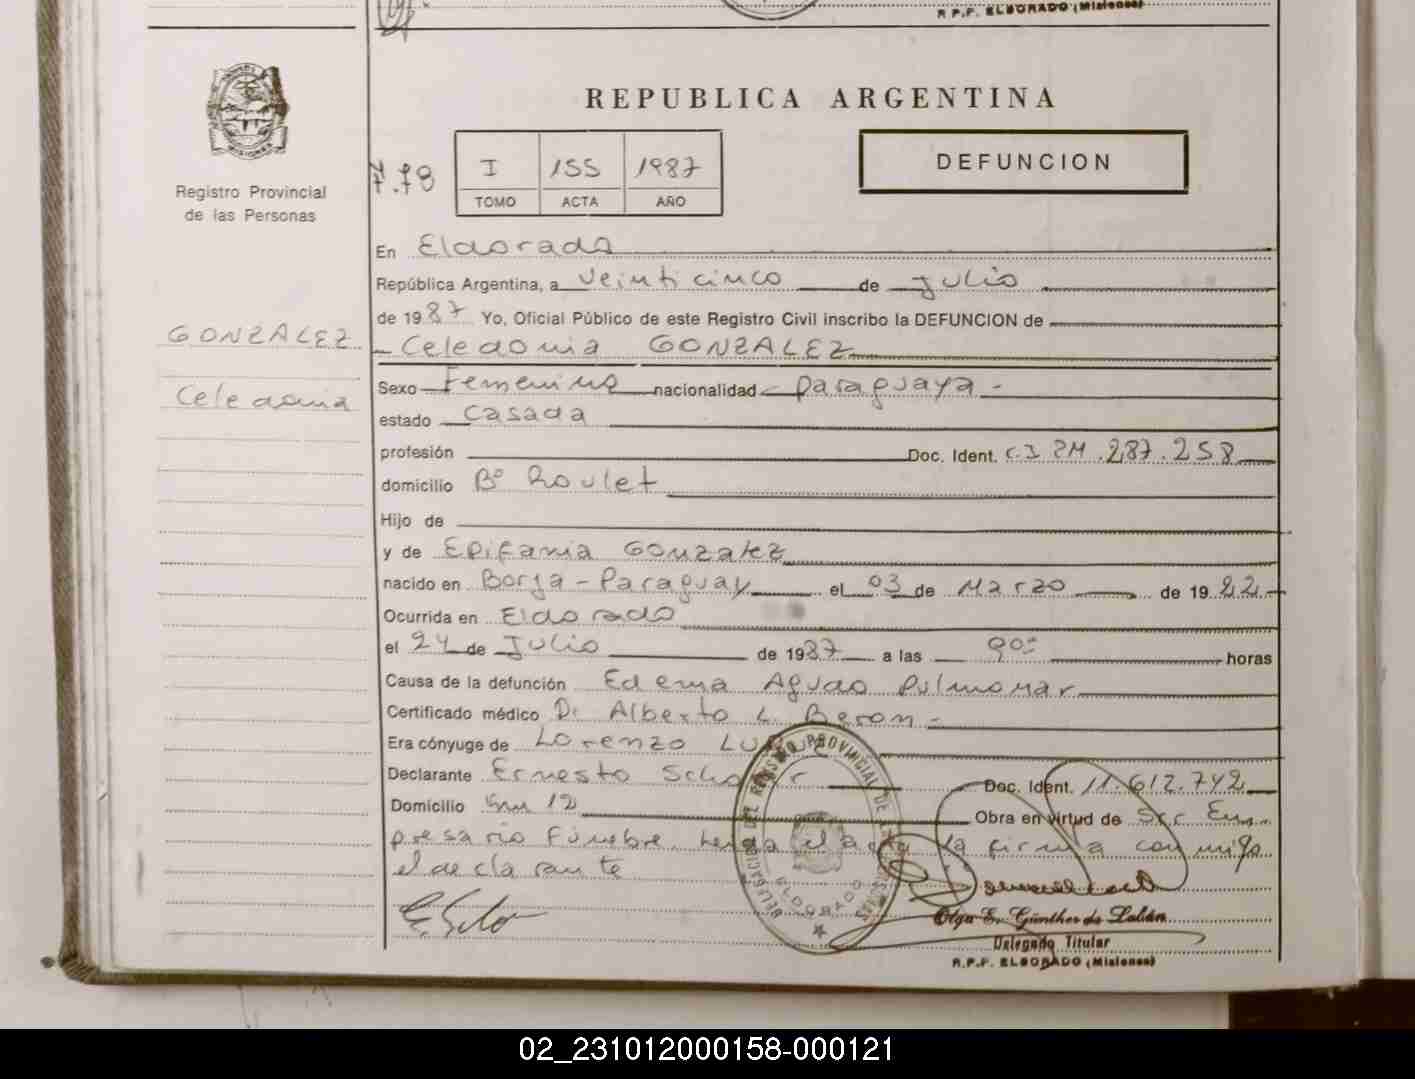 R.P.F. ELDORADO (Misiones)
REPUBLICA ARGENTINA
Registro Provincial
de las Personas
F.78
I 155 1987
TOMO ACTA AÑO
DEFUNCION
En Eldorado
República Argentina, a Veinticinco de Julio
de 1987 Yo, Oficial Público de este Registro Civil inscribo la DEFUNCION de
GONZALEZ
Celedonia GONZALEZ
Celedonia
Sexo Femenino nacionalidad paraguaya -
estado Casada
profesión Doc. Ident. C.I 2M.287.258
domicilio Bº Roulet
Hijo de
y de Epifania Gonzalez
nacido en Borja - Paraguay el 03 de Marzo de 1922
Ocurrida en Eldorado
el 24 de Julio de 1987 a las 9 horas
Causa de la defunción Edema Agudo Pulmonar
Certificado médico Dr Alberto L Beron -
Era cónyuge de Lorenzo
Declarante Ernesto Doc. Ident. 11.612.742
Domicilio Km 12 Obra en virtud de Ser Em-
presario Fúnebre el acta la firma conmigo
el declarante
DELEGACION DEL REGISTRO PROVINCIAL DE LAS PERSONAS
ELDORADO
Olga E. Günther de
Delegado Titular
R.P.F. ELDORADO (Misiones)
02_231012000158-000121